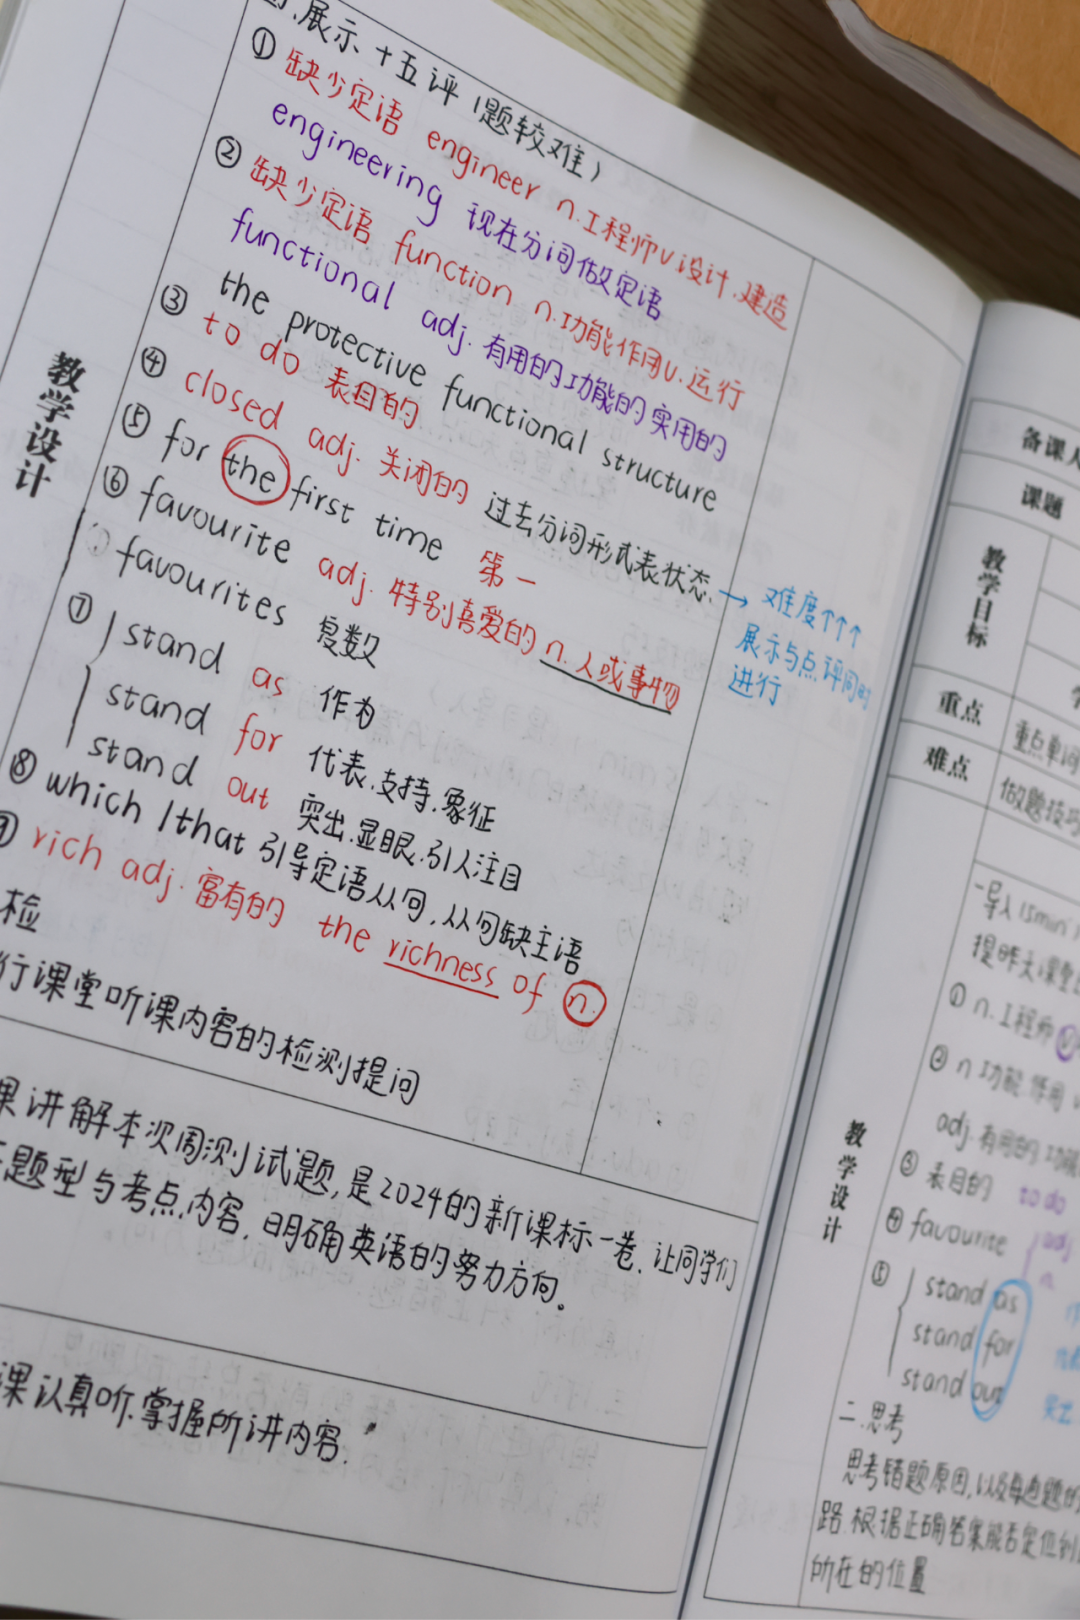 展示十五评(题较难)
① 缺少定语 engineer n.工程师v.设计.建造
engineering 现在分词做定语
② 缺少定语 function n.功能作用v.运行
functional adj.有用的功能的实用的
the protective functional structure
③ to do 表目的
④ closed adj. 关闭的 过去分词形式表状态.
⑤ for the first time 第一
→ 难度↑↑↑
展示与点评同时
进行
⑥ favourite adj. 特别喜爱的 n.人或事物
favourites 复数
⑦ stand as 作为
stand for 代表.支持.象征
stand out 突出.显眼.引人注目
⑧ which/that 引导定语从句,从句缺主语
rich adj.富有的 the richness of n.
检
行课堂听课内容的检测提问
教学设计
课讲解本次周测试题,是2024的新课标一卷.让同学们
题型与考点内容.明确英语的努力方向。
课认真听.掌握所讲内容.
备课人
课题
教学目标
学
重点 重点单词
难点 做题技巧
教学设计
一导入 15min
提昨天课堂
① n.工程师 v
② n 功能 作用
adj.有用的功能
③ 表目的 to do
④ favourite adj
n
⑤ stand as
stand for
stand out
突出
二.思考
思考错题原因,以及每道题的
路.根据正确答案能否定位到
所在的位置